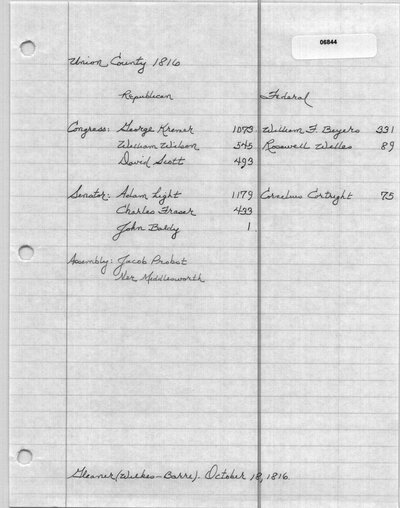 06844
Union County 1816
Republican Federal
Congress: George Kremer 1073 William F. Beyers 331
William Wilson 545 Rosewell Welles 89
David Scott 493
Senator: Adam Light 1179 Cornelius Cortright 75
Charles Fraser 433
John Baldy 1
Assembly: Jacob Probst
Ner Middlesworth
Gleaner (Wilkes-Barre). October 18, 1816.